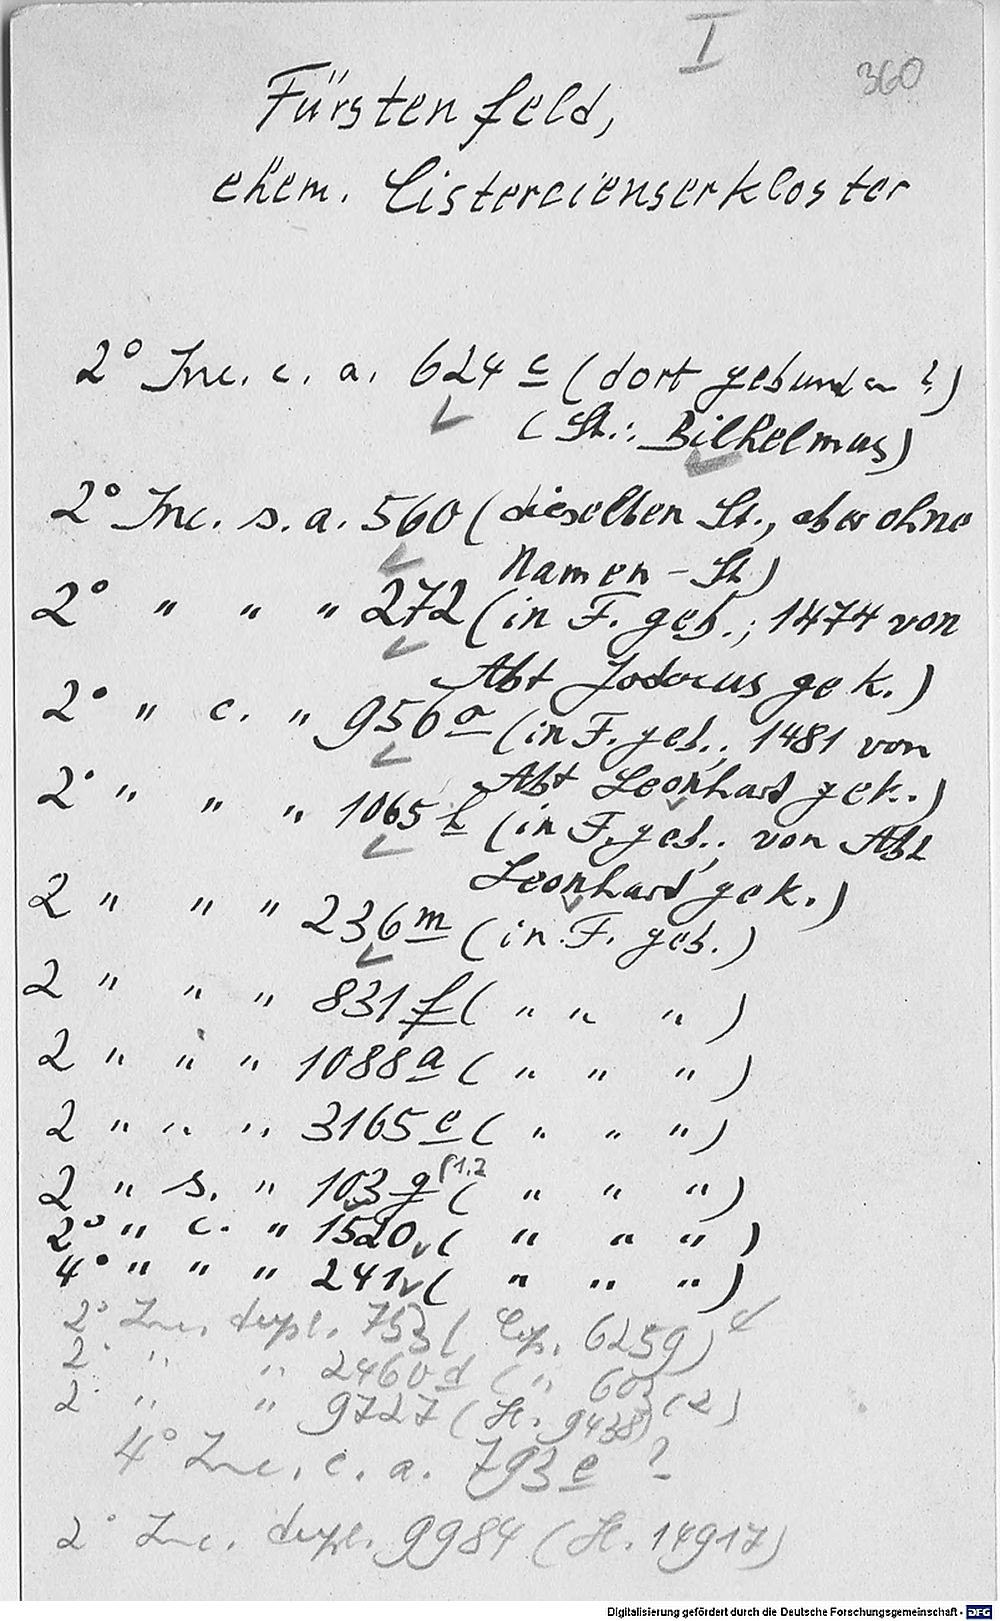 I
360
Fürstenfeld,
ehem. Cistercienserkloster
2° Inc. c. a. 624 c (dort gebunden?)
(St.: Bilhelmus)
2° Inc. s. a. 560 (dieselben St., aber ohne
Namen-St.)
2° " " " 272 (in F. geb.; 1474 von
Abt Jodocus gek.)
2° " c. " 956 a (in F. geb.; 1481 von
Abt Leonhard gek.)
2° " " " 1065 h (in F. geb.; von Abt
Leonhard gek.)
2 " " " 236 m (in F. geb.)
2 " " " 831 f ( " " " )
2 " " " 1088 a ( " " " )
2 " " " 3165 e ( " " " )
2 " s. " 103 g ( " " " )
2° " c. " 1520 ( " " " )
4° " " " 241 ( " " " )
2° Inc. dupl. 753 ( Cop. 6259)
2° " " 2460 d ( " 603 (2)
2° " " 9727 (H. 9438)
4° Inc. c. a. 793 e ?
2° Inc. dupl. 9984 (H. 14917)
Digitalisierung gefördert durch die Deutsche Forschungsgemeinschaft - DFG